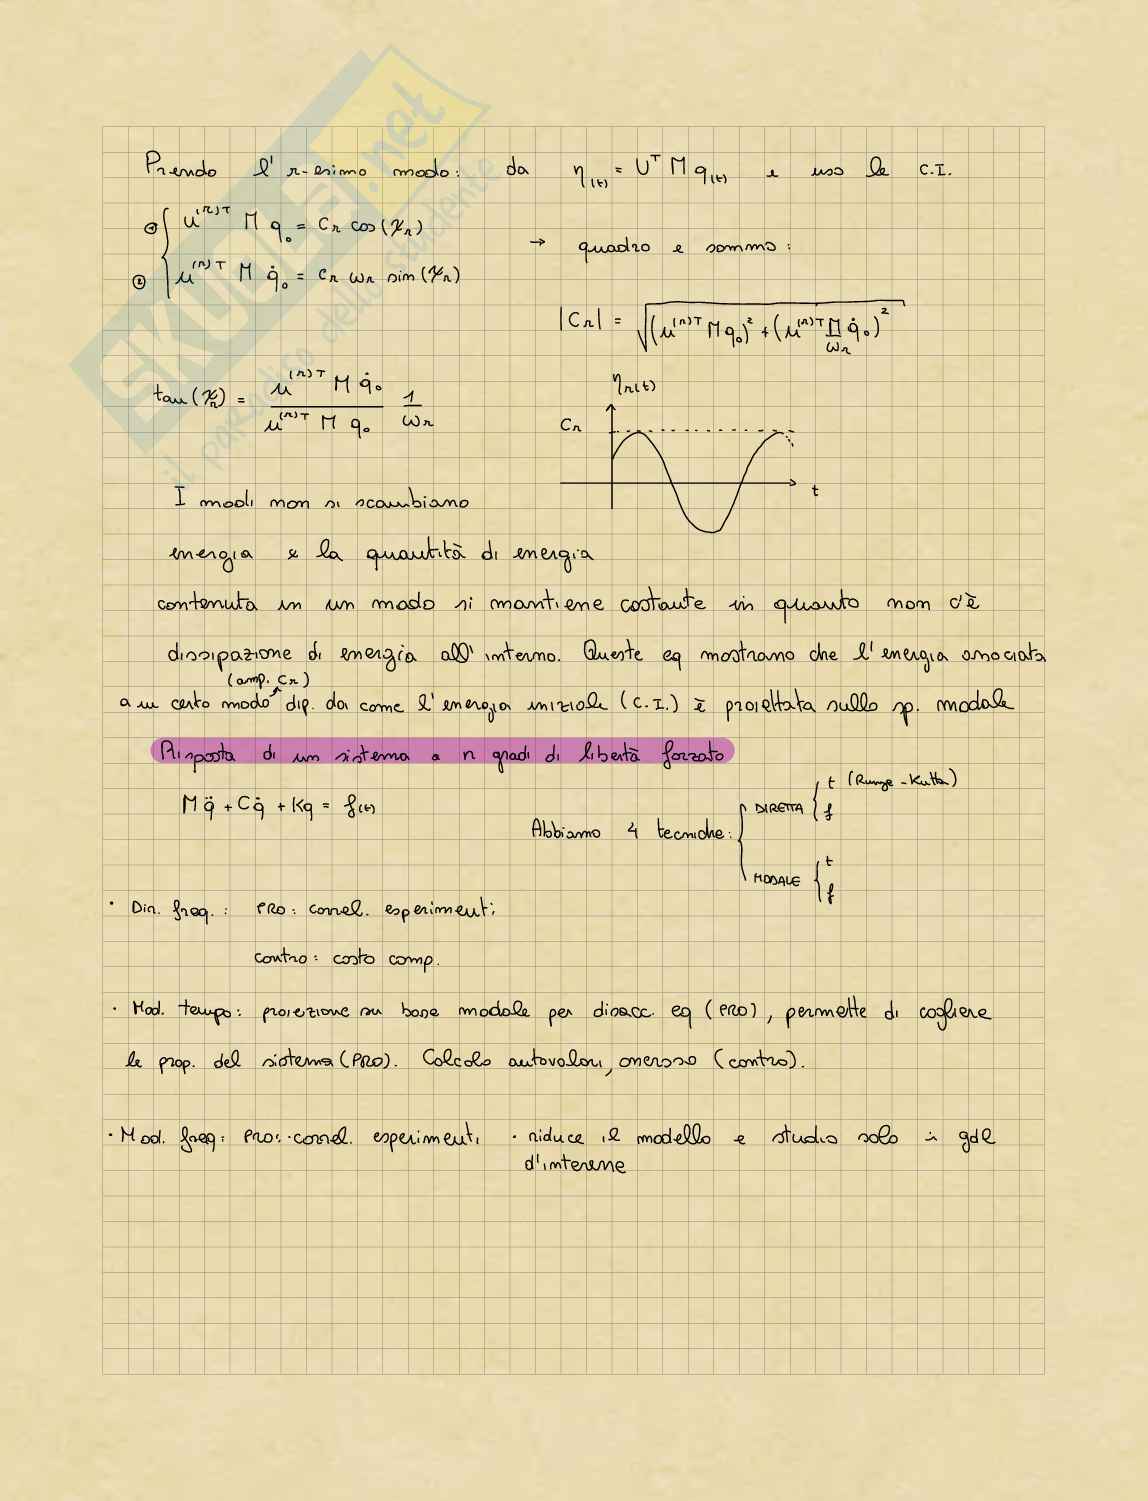 Prendo l' r-esimo modo: da η(t) = Uᵀ M q(t) e uso le C.I.
① { u⁽ʳ⁾ᵀ M q₀ = Cr cos(ψr)
② { u⁽ʳ⁾ᵀ M q̇₀ = Cr ωr sin(ψr)
→ quadro e sommo:
|Cr| = √( (u⁽ʳ⁾ᵀ M q₀)² + (u⁽ʳ⁾ᵀ M/ωr q̇₀)² )
tan(ψr) = (u⁽ʳ⁾ᵀ M q̇₀)/(u⁽ʳ⁾ᵀ M q₀) 1/ωr
ηr(t)
Cr
t
I modi non si scambiano
energia e la quantità di energia
contenuta in un modo si mantiene costante in quanto non c'è
dissipazione di energia all' interno. Queste eq mostrano che l' energia associata
(amp. Cr)
a un certo modo dip. da come l' energia iniziale (C.I.) è proiettata sullo sp. modale
Risposta di un sistema a n gradi di libertà forzato
Mq̈ + Cq̇ + Kq = f(t)
Abbiamo 4 tecniche: { DIRETTA { t (Runge-Kutta)
f
MODALE { t
f
· Dir. freq.: PRO: correl. esperimenti
contro: costo comp.
· Mod. tempo: proiezione su base modale per disacc. eq (PRO), permette di cogliere
le prop. del sistema (PRO). Calcolo autovalori, oneroso (contro).
· Mod. freq: PRO: · correl. esperimenti · riduce il modello e studio solo i gdl
d'interesse
SKUOLA.net
il paradiso dello studente